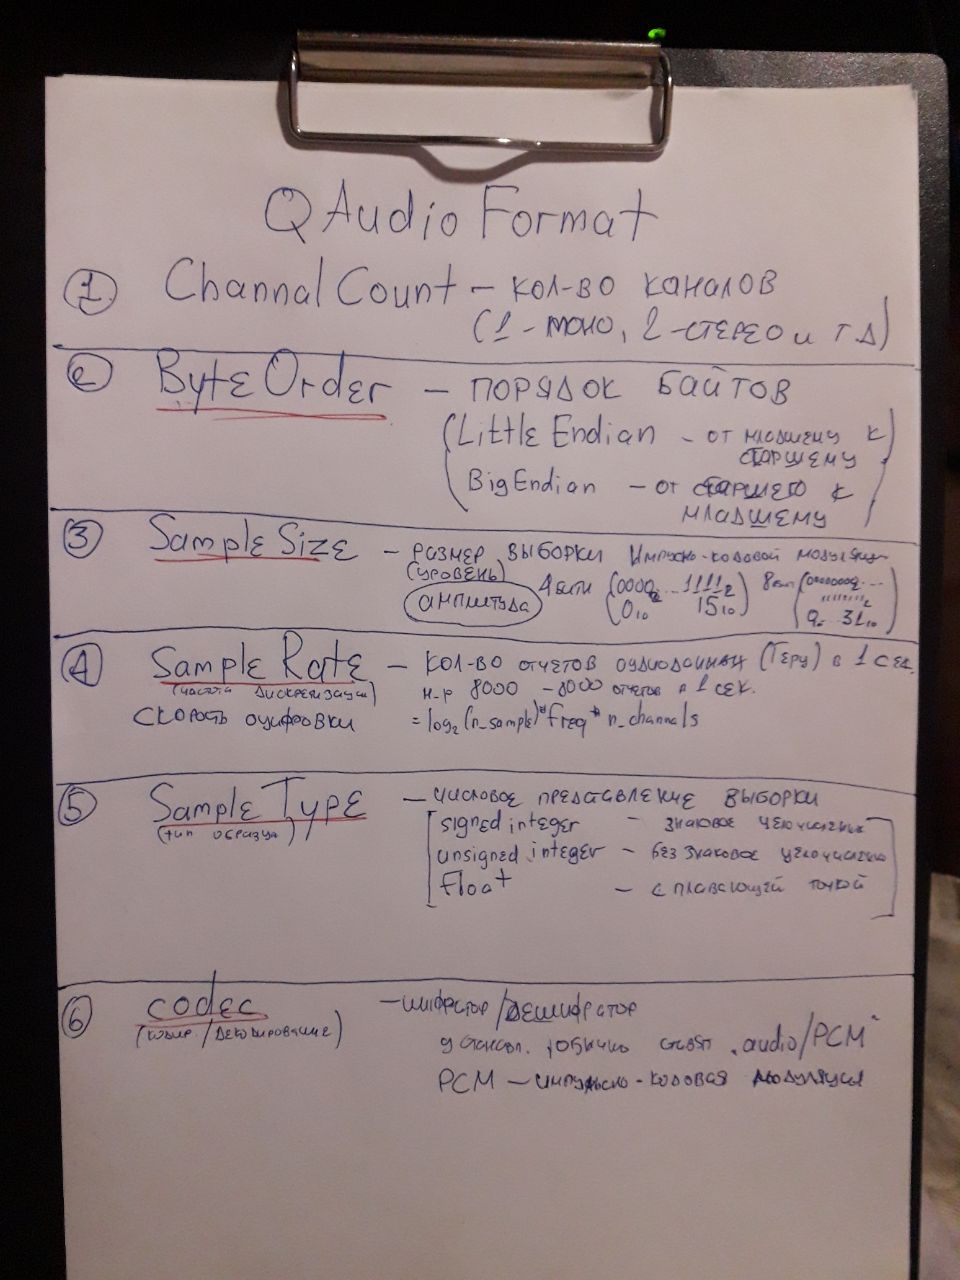 QAudioFormat
1 Channal Count - кол-во каналов
(1-моно, 2-стерео и т д)
2 Byte Order - порядок байтов
(Little Endian - от младшему к
старшему
Big Endian - от старшего к
младшему)
3 Sample Size - размер выборки Импусно-кодовой модуляции
(уровень)
амплитуда 4 бити (0000₂...1111₂ 8 бит (00000000₂...
11111111₂
0₁₀ 15₁₀) 0.. 31₁₀)
4 Sample Rate - кол-во отчетов аудиоданных (Герц) в 1 сек.
(частота дискретизации) н-р 8000 - 8000 отчетов в 1 сек.
Скорость оцифровки = log₂(n_sample)*freq*n_channals
5 Sample Type - числовое представление выборки
(тип образца)
[signed integer - знаковое целочислен
unsigned integer - без знаковое целочислено
Float - с плавающей точкой]
6 codec - шифратор/Дешифратор
(кодир./декодирование)
устанавл., обычно ставят "audio/PCM"
PCM - импульсно-кодовая модуляция